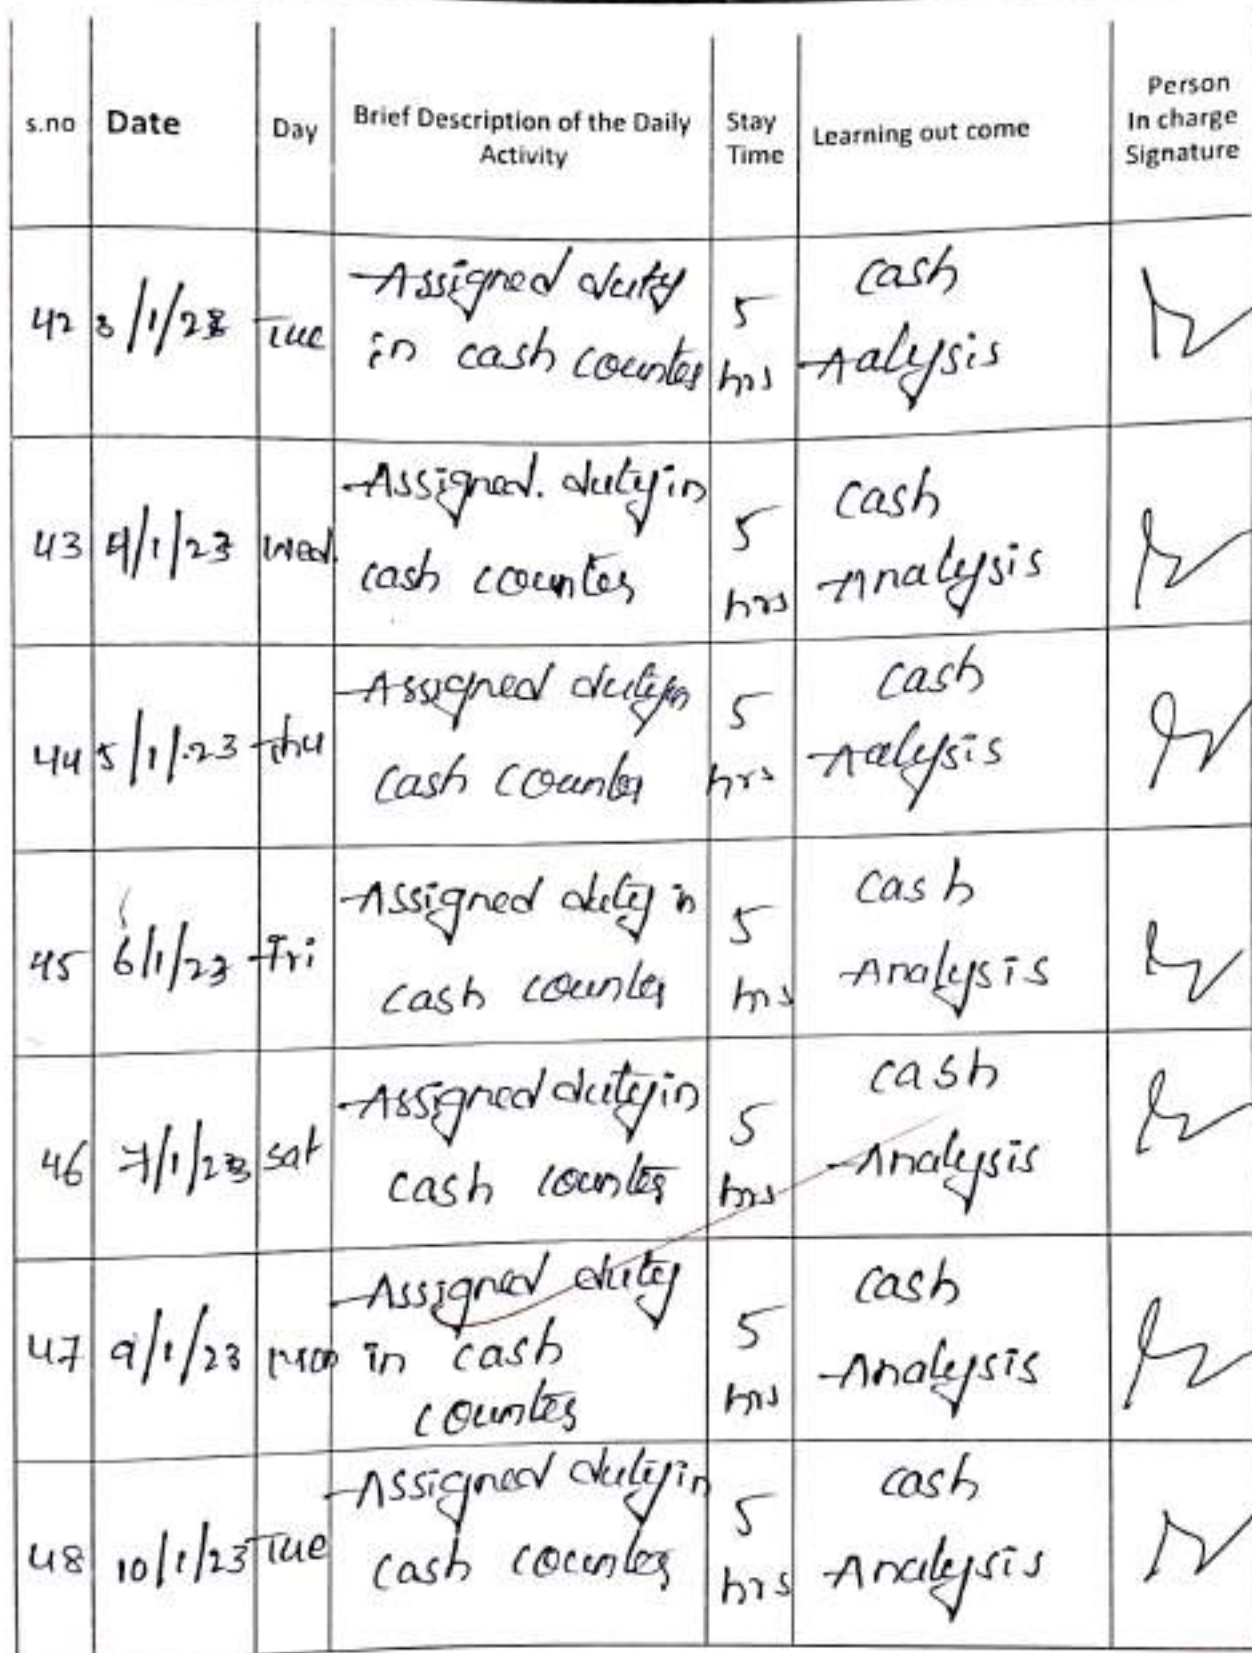 s.no Date Day Brief Description of the Daily Activity Stay Time Learning out come Person In charge Signature
42 3/1/23 Tue Assigned duty in cash counter 5 hrs cash Aalysis
43 4/1/23 Wed. Assigned. duty in cash counter 5 hrs cash Analysis
44 5/1/23 thu Assigned duty in cash counter 5 hrs cash Aalysis
45 6/1/23 Fri Assigned duty in cash counter 5 hrs cash Analysis
46 7/1/23 Sat Assigned duty in cash counter 5 hrs cash Analysis
47 9/1/23 Mon Assigned duty in cash counter 5 hrs cash Analysis
48 10/1/23 Tue Assigned duty in cash counter 5 hrs cash Analysis